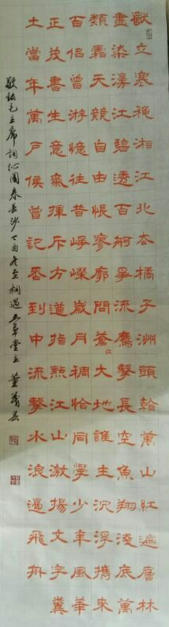 獨立寒穐湘江北去橘子洲頭看萬山紅遍層林
盡染漫江碧透百舸爭流鷹擊長空魚翔淺底萬
類霜天競自由悵寥廓問蒼茫大地誰主沉浮攜來
百侶曾游憶往昔崢嶸歲月稠恰同學少年風華
正茂書生意氣揮斥方遒指點江山激揚文字糞
土當年萬戶侯曾記否到中流擊水浪遏飛舟
敬錄毛主席詞沁園春長沙丁酉冬至草堂主董